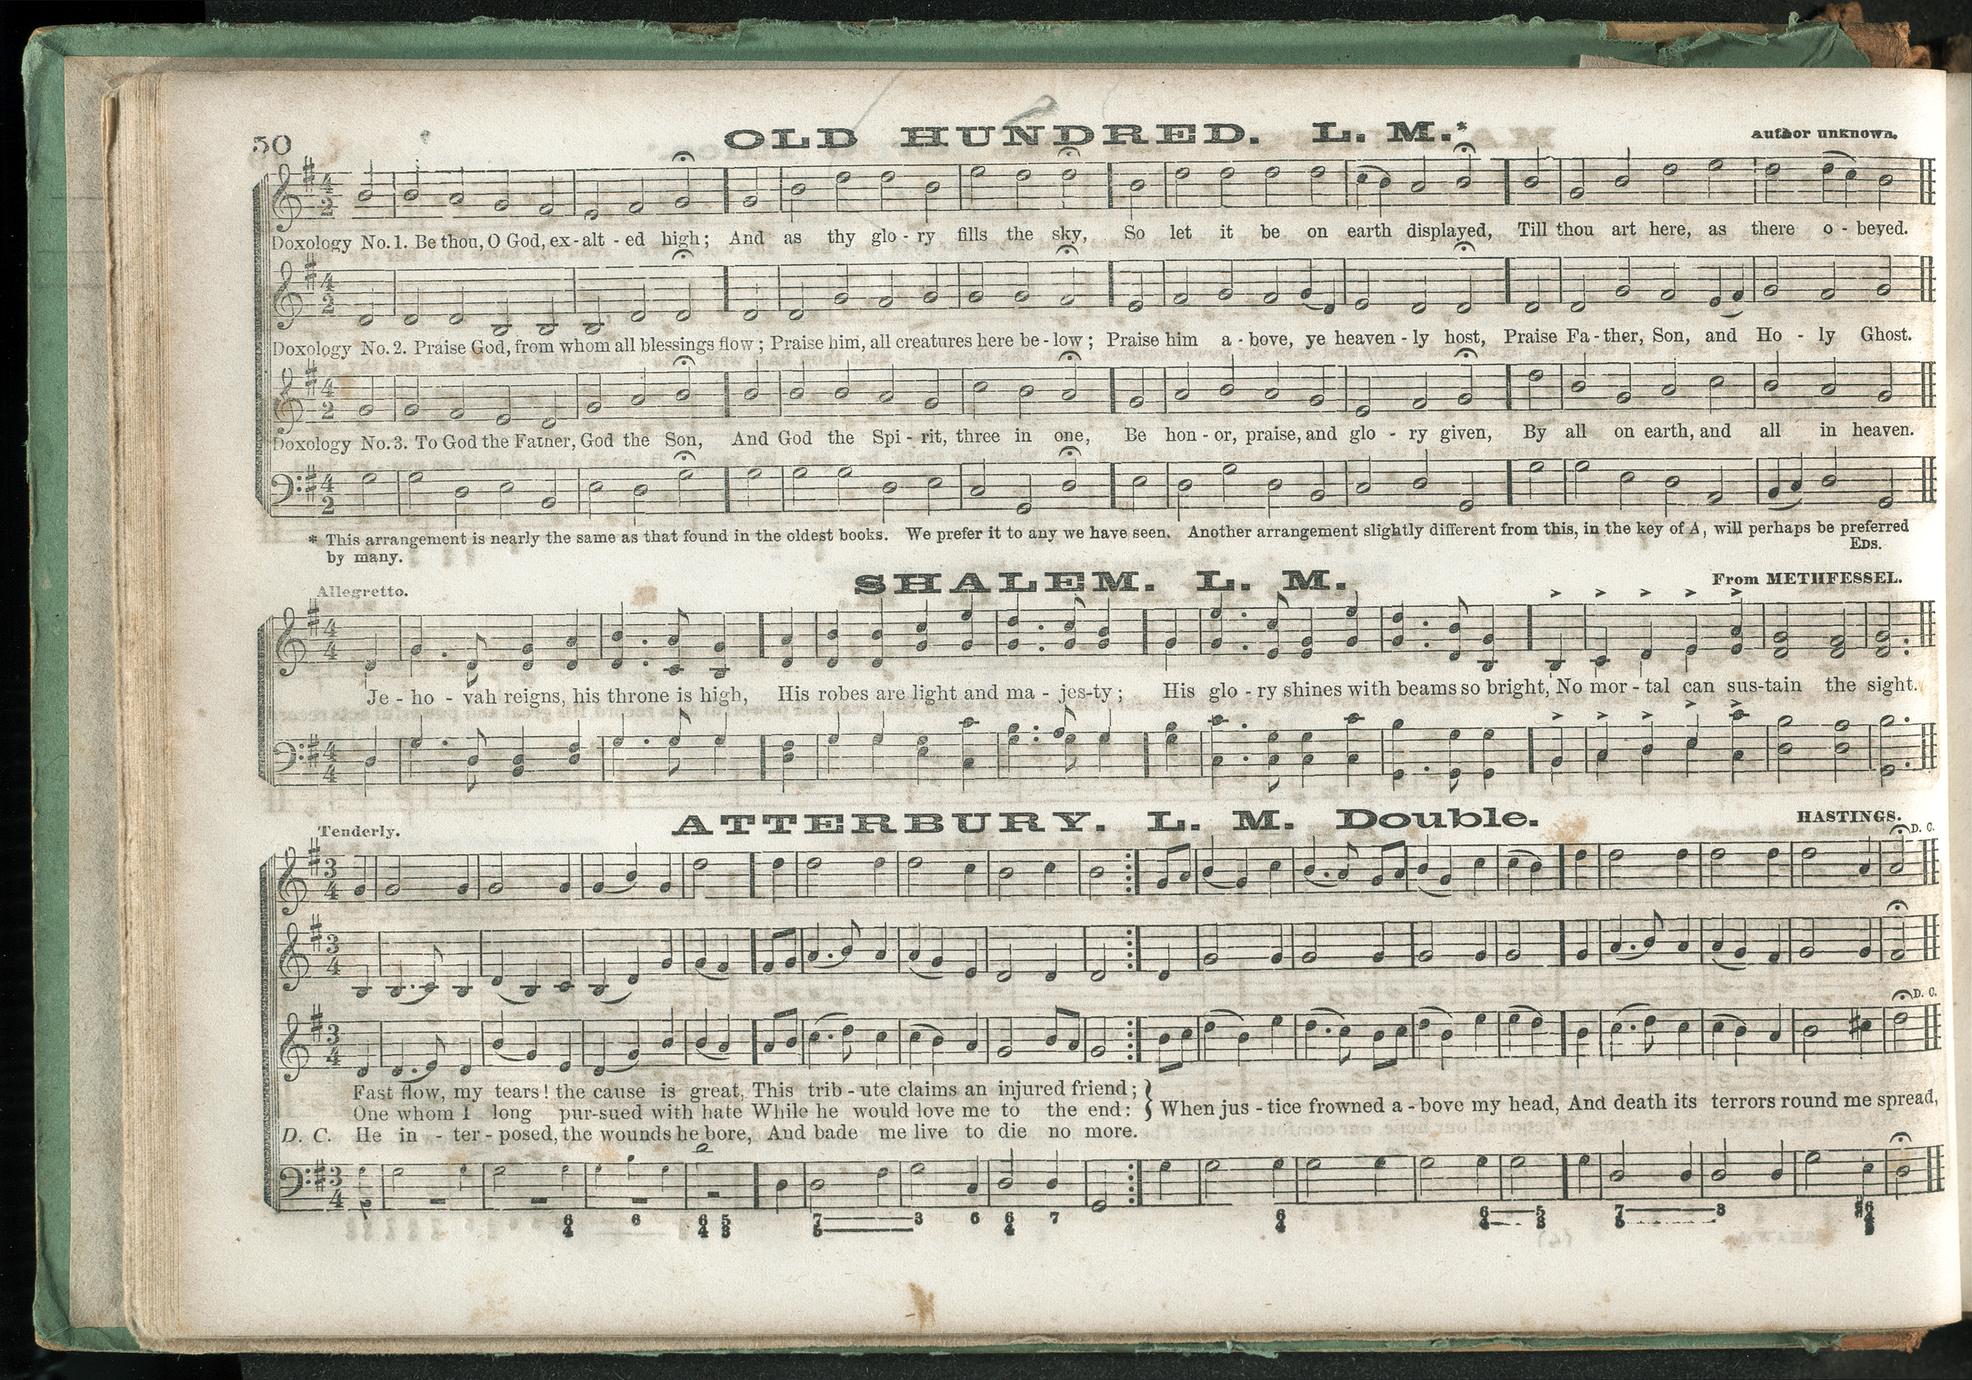 50
OLD HUNDRED. L. M.*
author unknown.
Doxology No. 1. Be thou, O God, ex - alt - ed high; And as thy glo - ry fills the sky, So let it be on earth displayed, Till thou art here, as there o - beyed.
Doxology No. 2. Praise God, from whom all blessings flow; Praise him, all creatures here be - low; Praise him a - bove, ye heaven - ly host, Praise Fa - ther, Son, and Ho - ly Ghost.
Doxology No. 3. To God the Father, God the Son, And God the Spi - rit, three in one, Be hon - or, praise, and glo - ry given, By all on earth, and all in heaven.
* This arrangement is nearly the same as that found in the oldest books. We prefer it to any we have seen. Another arrangement slightly different from this, in the key of A, will perhaps be preferred
by many. EDS.
SHALEM. L. M.
Allegretto. From METHFESSEL.
Je - ho - vah reigns, his throne is high, His robes are light and ma - jes - ty; His glo - ry shines with beams so bright, No mor - tal can sus - tain the sight.
ATTERBURY. L. M. Double.
Tenderly. HASTINGS.
D. C.
D. C.
Fast flow, my tears! the cause is great, This trib - ute claims an injured friend;
One whom I long pur - sued with hate While he would love me to the end:
When jus - tice frowned a - bove my head, And death its terrors round me spread,
D. C. He in - ter - posed, the wounds he bore, And bade me live to die no more.
6 6 6 5 7 3 6 6 7 6 6 5 7 3 #6
4 4 3 5 4 4 4 3 5